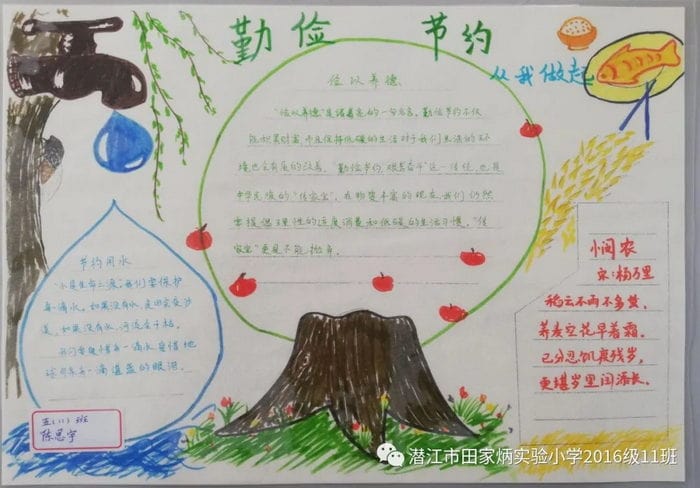 勤俭 节约
从我做起
俭以养德
"俭以养德"是诸葛亮的一句名言。勤俭节约不仅
能积累财富,而且保持低碳的生活对于我们生活的环
境也会有质的改善。"勤俭节约,艰苦奋斗"这一传统,也是
中华民族的"传家宝",在物质丰富的现在,我们仍然
要提倡理性的适度消费和低碳的生活习惯。"传
家宝"更是不能抛弃。
节约用水
"水是生命之源,我们要保护
每一滴水。如果没有水,良田会变沙
漠,如果没有水,河流会干枯。
我们要珍惜每一滴水,爱惜地
球母亲每一滴湛蓝的眼泪。
悯农
宋:杨万里
稻云不雨不多黄,
荞麦空花早着霜。
已分忍饥度残岁,
更堪岁里闰添长。
五(11)班
陈思宇
潜江市田家炳实验小学2016级11班